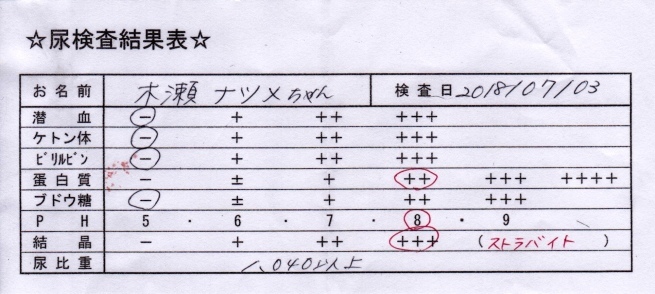 ☆尿検査結果表☆
お名前 木瀬 ナツメちゃん 検査日 2018/07/03
潜血 － + ++ +++
ケトン体 － + ++ +++
ビリルビン － + ++ +++
蛋白質 － ± + ++ +++ ++++
ブドウ糖 － ± + ++ +++
PH 5 ・ 6 ・ 7 ・ 8 ・ 9
結晶 － + ++ +++ (ストラバイト)
尿比重 1.040以上